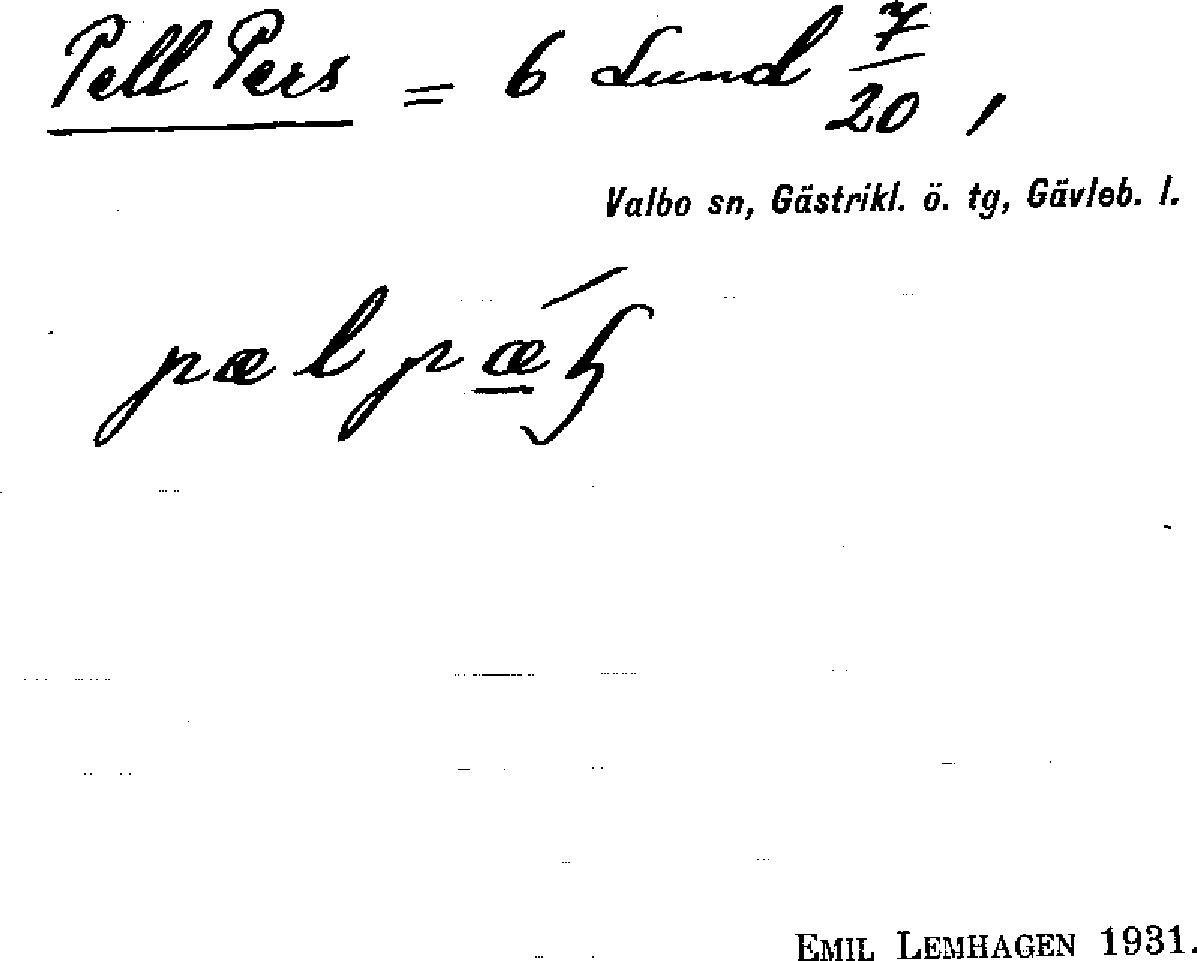 Pell Pers = 6 Lund 7/20,
Valbo sn, Gästrikl. ö. tg, Gävleb. l.
pæl pǽ
EMIL LEMHAGEN 1931.